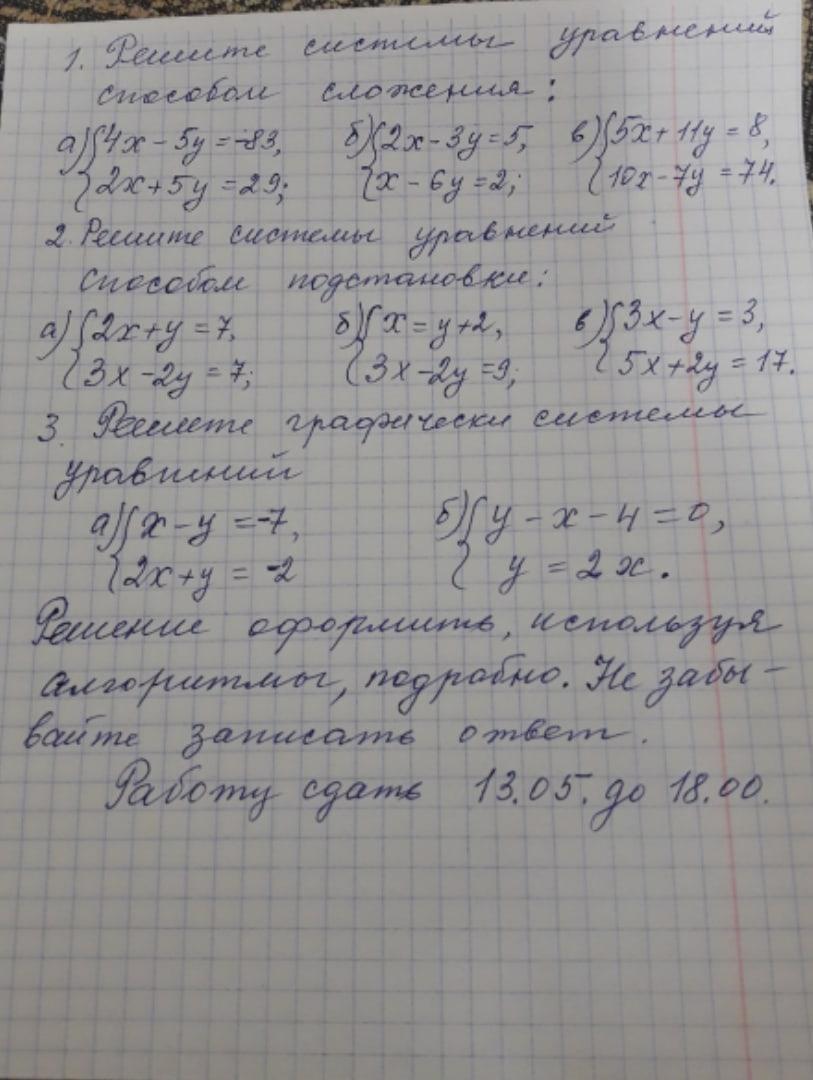 1. Решите системы уравнений
способом сложения:
а) { 4x - 5y = -83, б) { 2x - 3y = 5, в) { 5x + 11y = 8,
2x + 5y = 29; x - 6y = 2; 10x - 7y = 74.
2. Решите системы уравнений
способом подстановки:
а) { 2x + y = 7, б) { x = y + 2, в) { 3x - y = 3,
3x - 2y = 7; 3x - 2y = 9; 5x + 2y = 17.
3. Решите графически системы
уравнений
а) { x - y = -7, б) { y - x - 4 = 0,
2x + y = -2 y = 2x.
Решение оформить, используя
алгоритмы, подробно. Не забы-
вайте записать ответ.
Работу сдать 13.05. до 18.00.